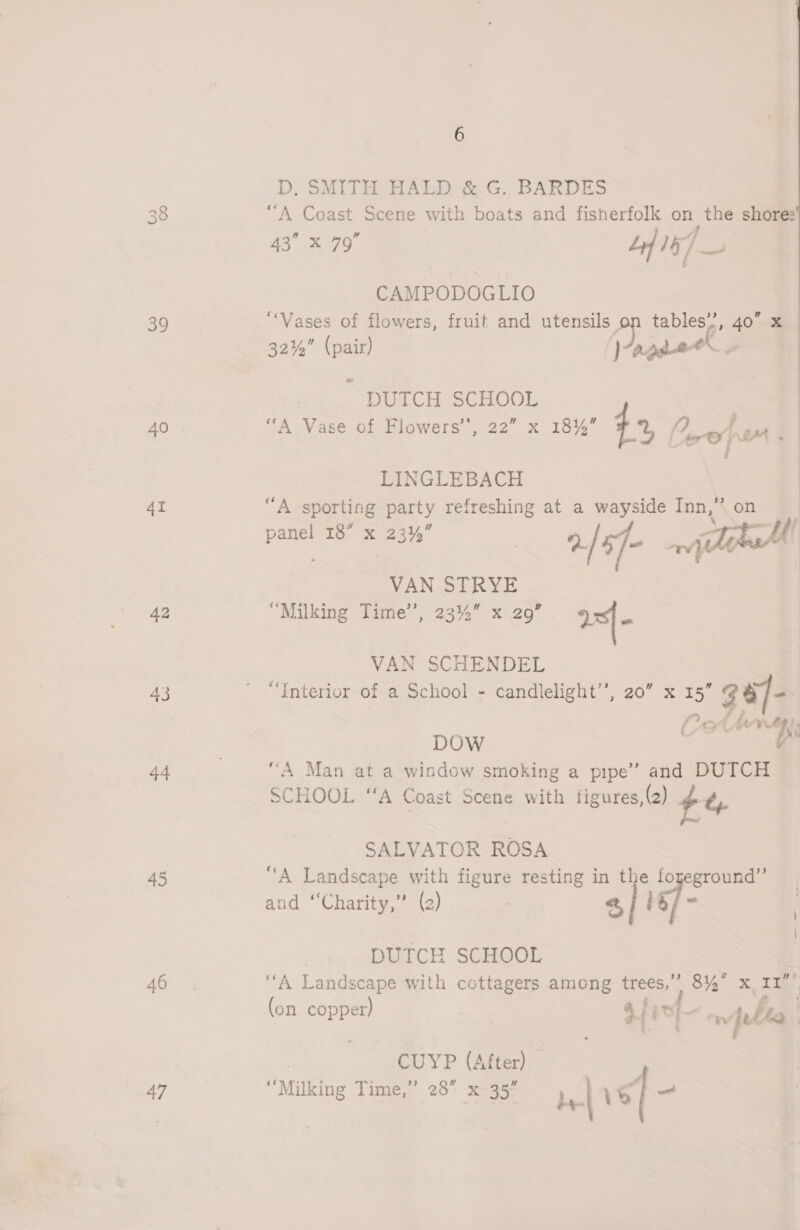 6
D. SMITH HALD & G. BARDES
38 “A Coast Scene with boats and fisherfolk on the shores’
43" x 79"
CAMPODOGLIO
39 “Vases of flowers, fruit and utensils on tables”, 40" x
32½" (pair)
DUTCH SCHOOL
40 “A Vase of Flowers”, 22" x 18½"
LINGLEBACH
41 “A sporting party refreshing at a wayside Inn,” on
panel 18" x 23½" 2/5/-
VAN STRYE
42 “Milking Time”, 23½" x 29"
VAN SCHENDEL
43 “Interior of a School - candlelight”, 20" x 15"
DOW
44 “A Man at a window smoking a pipe” and DUTCH
SCHOOL “A Coast Scene with figures,(2)
SALVATOR ROSA
45 “A Landscape with figure resting in the foreground”
and “Charity,” (2)
DUTCH SCHOOL
46 “A Landscape with cottagers among trees,” 8½" x 11"
(on copper)
CUYP (After)
47 “Milking Time,” 28" x 35"